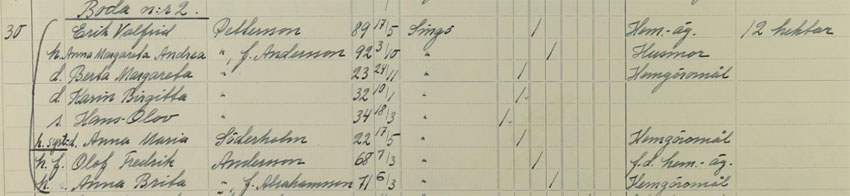 Boda n:r 2.
30 Erik Valfrid Pettersson 89 17/5 Singö / Hem.-äg. 12 hektar
h. Anna Margareta Andrea " , f. Andersson 92 3/10 " / Husmor
d. Berta Margareta " 23 24/11 " / Hemgöromål
d. Karin Birgitta " 32 10/1 " /
s. Hans-Olov " 34 18/3 " /.
h. syst:s d. Anna Maria Söderholm 22 17/5 " / Hemgöromål
h. f. Olof Fredrik Andersson 68 7/3 " / f.d. hem.-äg.
h. " Anna Brita " , f. Abrahamsson 71 6/3 " / Hemgöromål